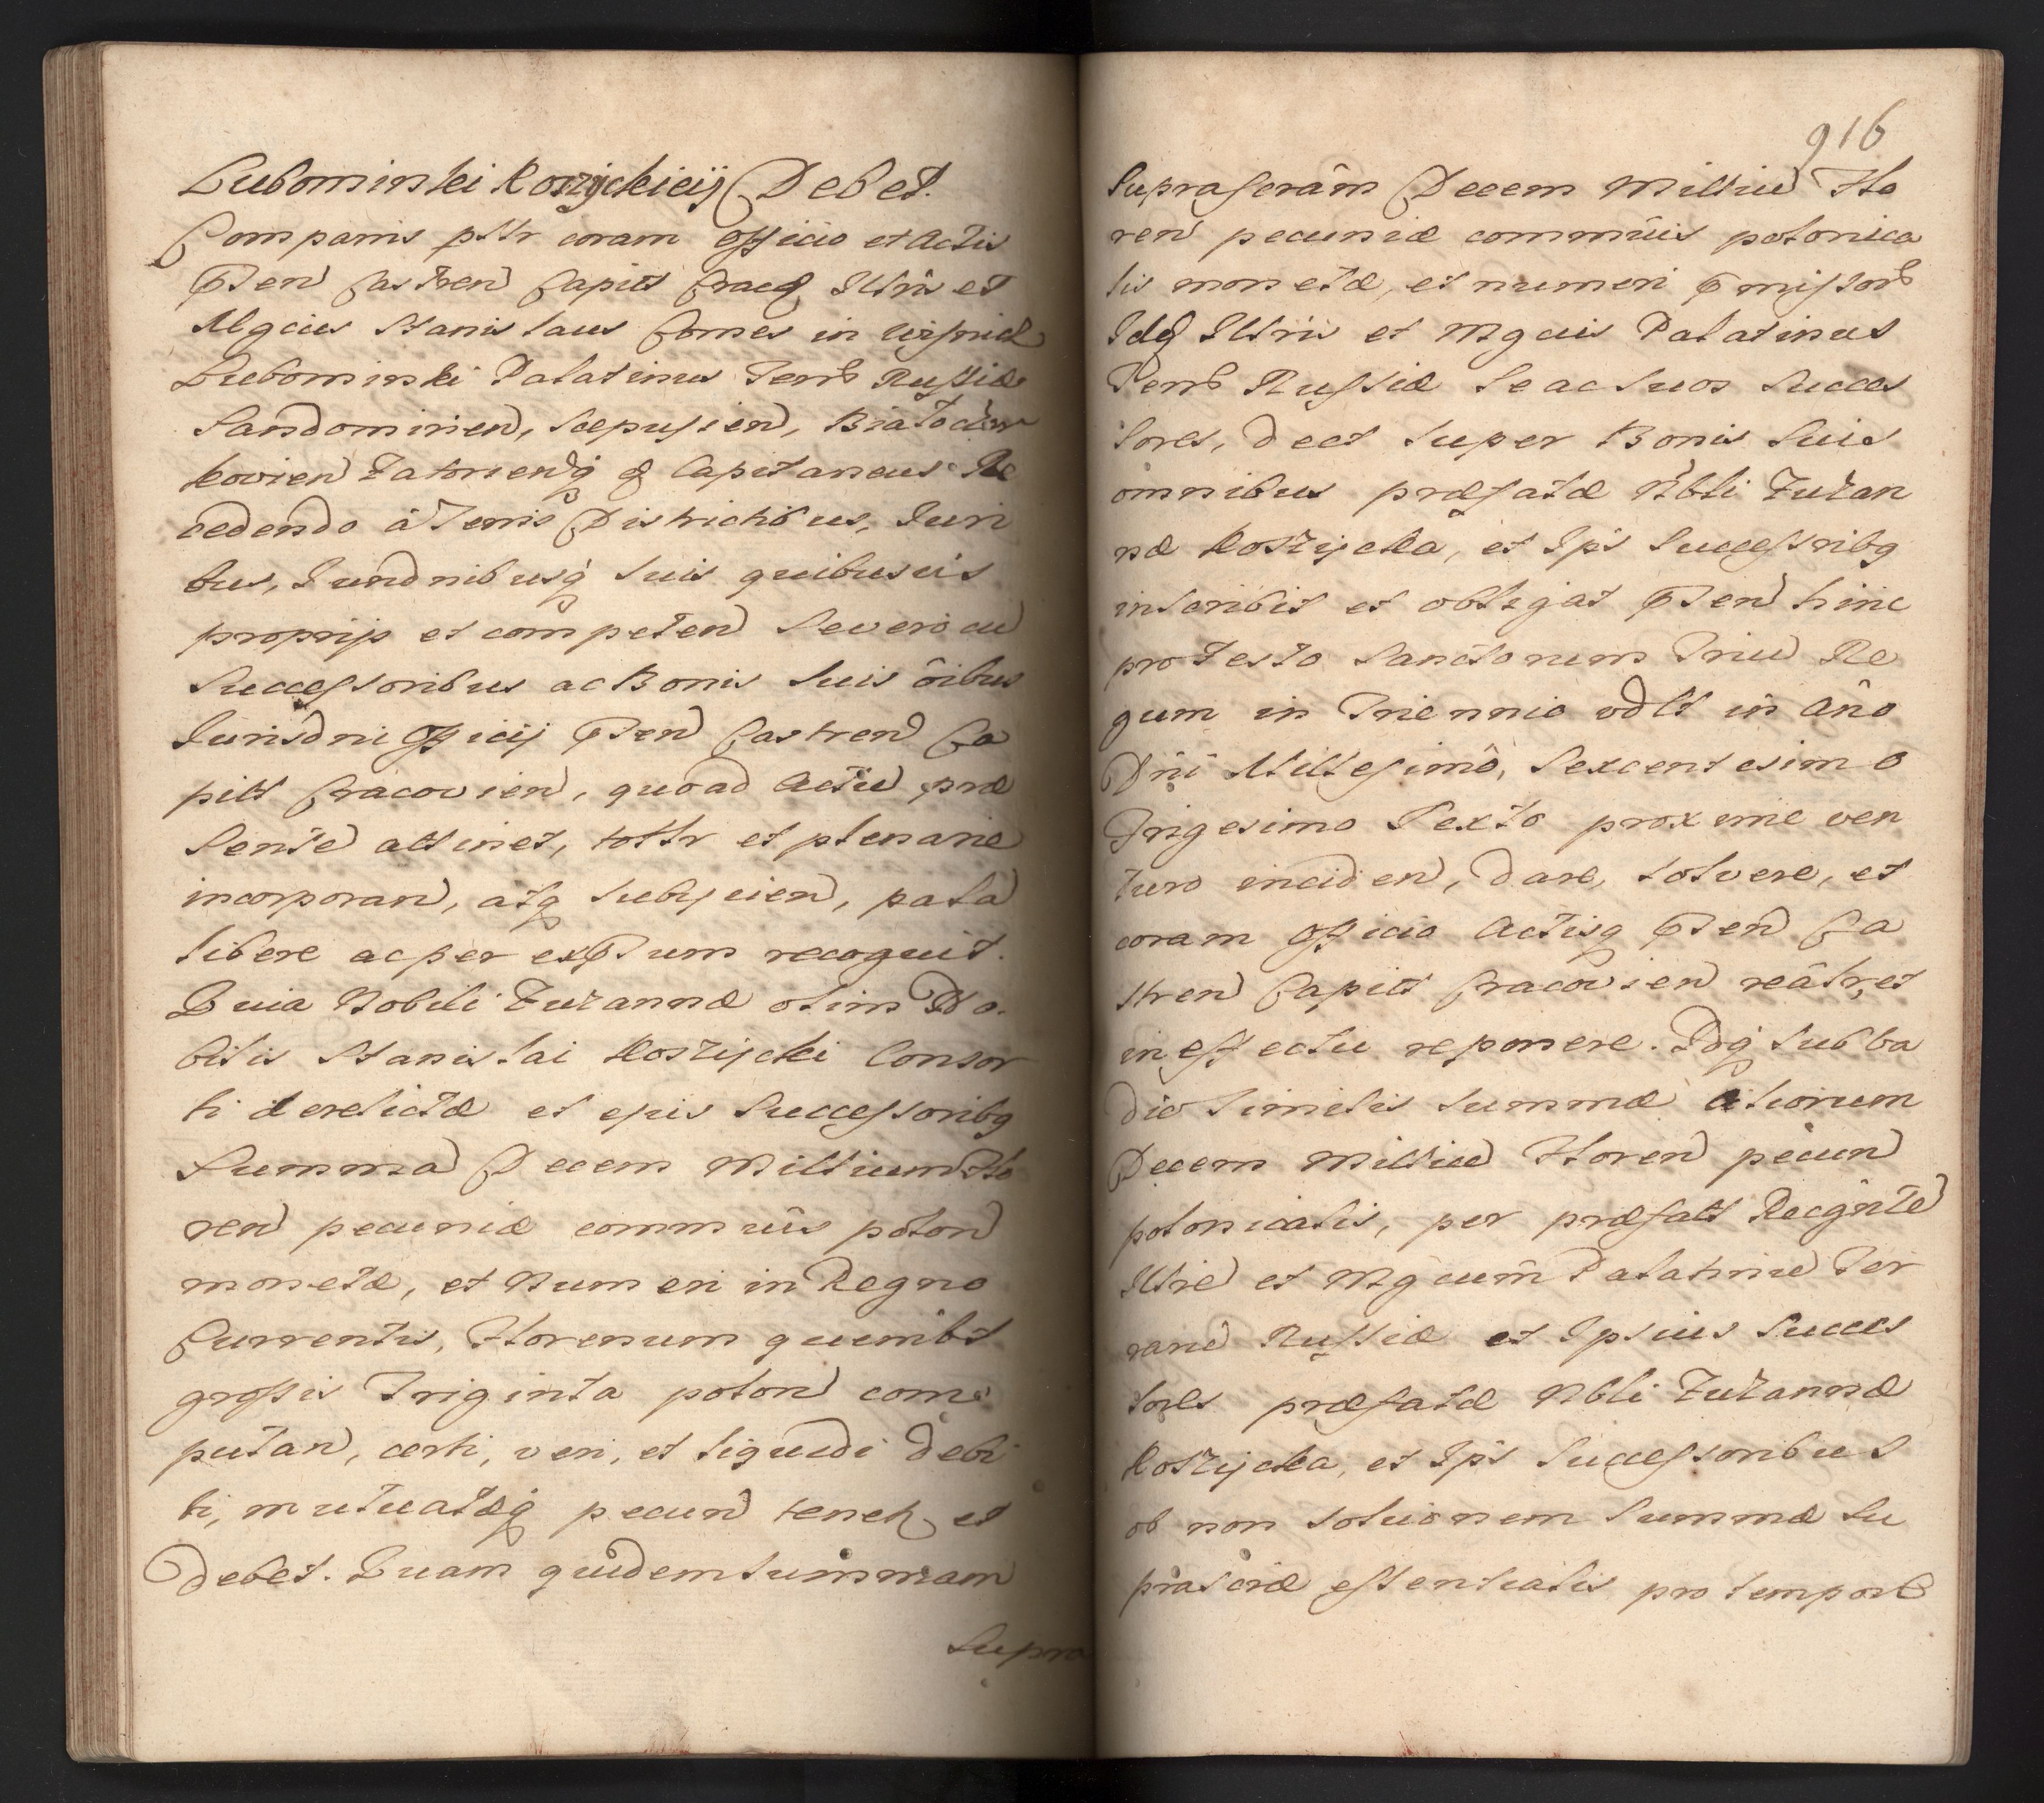 Lubomirski Koszyckieij Debet.
Comparens psttr coram officio et Actis
pnten Castren Capitt Crac[que] Illtris et
Mgcus Stanislaus Comes in Wisnicz
Lubomirski Palatinus Terr Russiæ
Sandomirien, Scepusien, Białocer
kovien Zatorienq q Capitaneus Re
cedendo â Terris Districtibus, Juri
bus, Jurisdnibusq suis quibusuis
proprijs et competen Severo cu
Successoribus ac Bonis suis ôibus
Jurisdni Officij pnten Castren Ca
pitt Cracovien, quoad Actu præ
sente attinet, tottr et plenarie
incorporan, atq subijcien, pala
libere ac per expssum recognit.
Quia Nobili Zuzannæ olim No
bilis Stanislai Koszycki Consor
ti derelictæ et ejus Successoribq
Summa Decem Millium Flo
ren pecuniæ commuis polon
monetæ, et Numeri in Regno
Currentis, Florenum quemlbt
grossis Triginta polon com
putan, certi, veri, et liquidi debi
ti, mutuatæq pecun tenetr et
debet. Quam quidem summam
Supra
916
suprascrâm Decem Milliu Flo
ren pecuniæ commûis polonica
lis monetæ, et numeri pmissor
Idq Illtris et Mgcus Palatinus
Terr Russiæ se ac suos Succes
sores, deqt super Bonis suis
omnibus præfatæ Nbli Zuzan
næ Koszycka, et Ips Successribq
inscribit et obligat pnten hinc
pro Festo Sanctorum Triu Re
gum in Triennio vdlt in Año
Dni Millesimô, Sexcentesimo
Trigesimo Sexto proxime ven
turo inciden, dare, solvere, et
coram Officio Actisq pnten Ca
stren Capitt Cracovien reâtr, et
in effectu reponere. Idq sub va
dio similis summæ aliorum
Decem Milliu Floren pecun
polonicalis, per præfatt Recgnte
Illtre et Mgcum Palatinu Ter
raru Russiæ et Ipsius Succes
sores præfatæ Nbli Zuzannæ
Koszycka, et Ips Successoribus
ob non soluionem Summæ su
prascriæ essentialis pro tempore